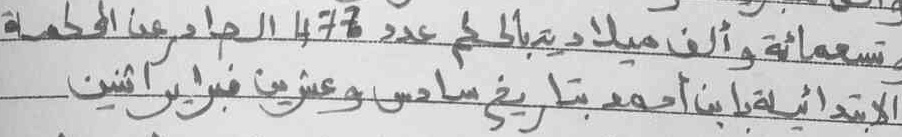 وتسعمائة وألف ميلادية بالحكم عدد 477 الصادر عن المحكمة
الابتدائية بابن أحمد بتاريخ سادس وعشرين فبراير اثنين